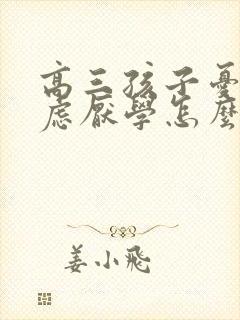 高三孩子憂
慮厭學怎麼
姜小飛